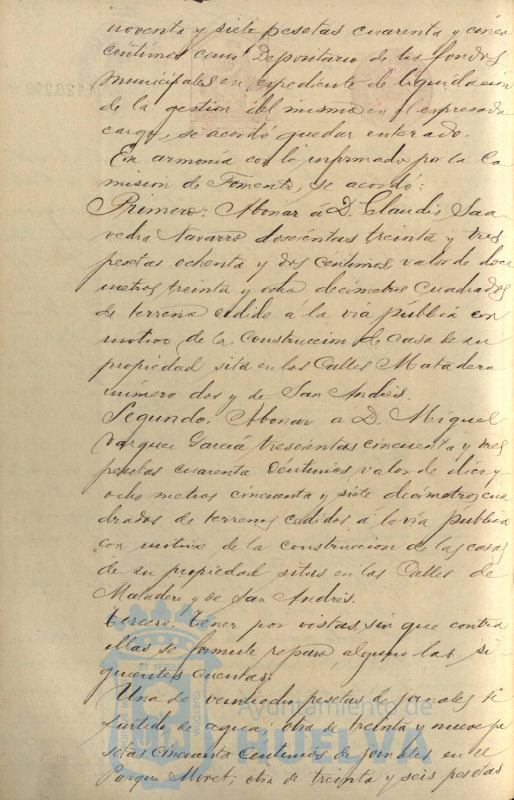 noventa y siete pesetas cuarenta y cinco
centimos como Depositario de los fondos
municipales en expediente de liquidación
de la gestion del mismo en el expresado
cargo, se acordó quedar enterado.
En armonía con lo informado por la Co
mision de Fomento, se acordó:
Primero: Abonar á D. Claudio Saa
vedra Navarro doscientas treinta y tres
pesetas ochenta y dos centimos, valor de doce
metros treinta y ocho decímetros cuadrados
de terreno cedido a la vía pública con
motivo de la construccion de casa de su
propiedad sita en las Calles Matadero
número dos y de San Andrés.
Segundo. Abonar a D. Miguel
Vazquez García, trescientas cincuenta y tres
pesetas cuarenta centimos, valor de diez y
ocho metros cincuenta y siete decimetros cua
drados de terrenos cedidos á la vía pública
con motivo de la construccion de las casas
de su propiedad sitas en las Calles de
Matadero y de San Andrés.
Tercero. Tener por vistas, sin que contra
ellas se formule reparo alguno las si
guientes cuentas:
Una de veintiocho pesetas de jornales
surtido de agua; otra de treinta y nueve pe
setas cincuenta centimos de jornales en el
Parque Moret; otra de treinta y seis pesetas
Ayuntamiento de
HUELVA